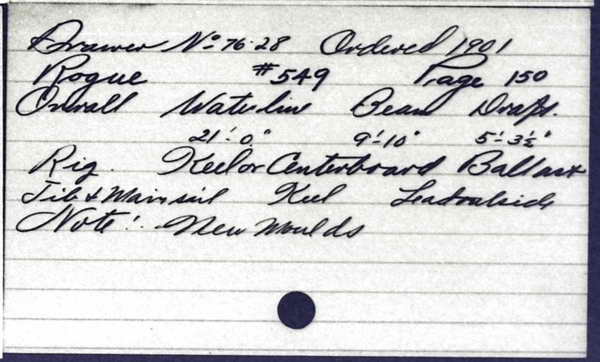 Drawer No 76-28 Ordered 1901
Rogue #549 Page 150
Overall Waterline Beam Draft.
21'-0" 9'-10" 5'-3½"
Rig. Keel or Centerboard Ballast
Jib & Mainsail Keel Lead outside
Note: New Moulds